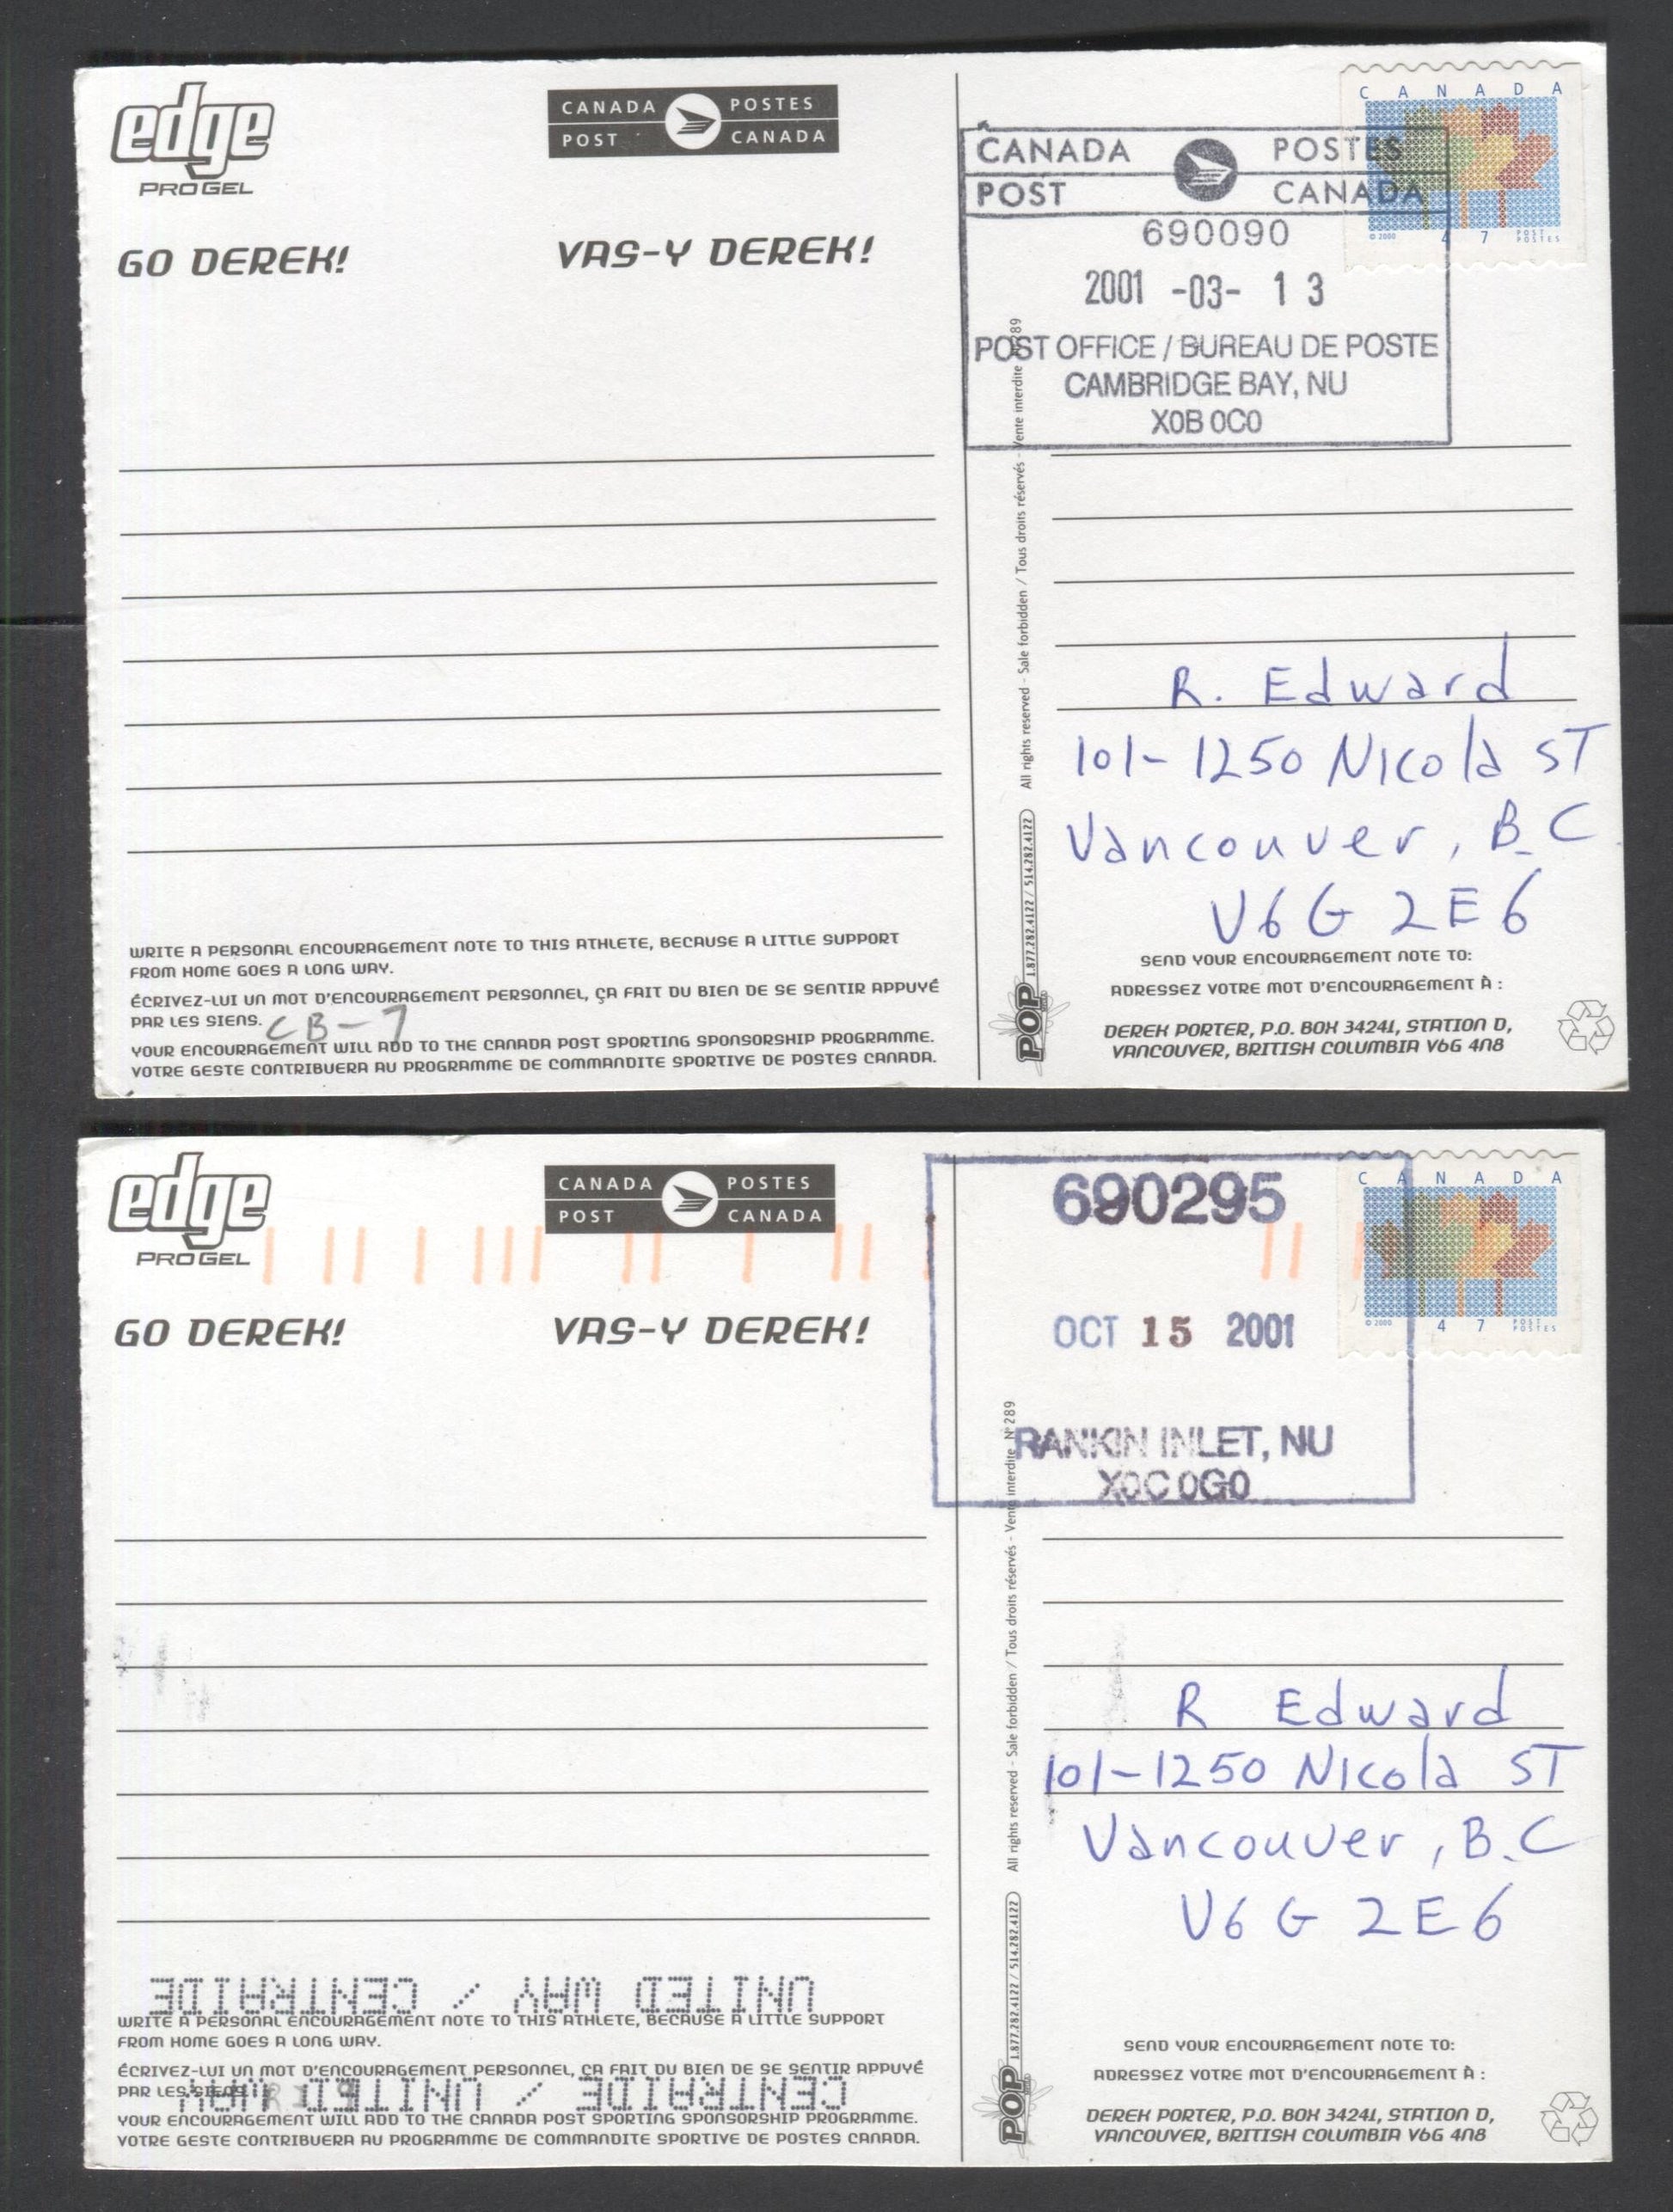 edge
PRO GEL
CANADA POSTES
POST CANADA
GO DEREK!
VAS-Y DEREK!
C A N A D A
© 2000 4 7 POST POSTES
CANADA POSTES
POST CANADA
690090
2001 -03- 1 3
POST OFFICE / BUREAU DE POSTE
CAMBRIDGE BAY, NU
X0B 0C0
All rights reserved - Sale forbidden / Tous droits réservés - Vente interdite N°289
1.877.282.4122 / 514.282.4122
POP
R. Edward
101-1250 Nicola ST
Vancouver, B.C
V6G 2E6
WRITE A PERSONAL ENCOURAGEMENT NOTE TO THIS ATHLETE, BECAUSE A LITTLE SUPPORT
FROM HOME GOES A LONG WAY.
ÉCRIVEZ-LUI UN MOT D'ENCOURAGEMENT PERSONNEL, ÇA FAIT DU BIEN DE SE SENTIR APPUYÉ
PAR LES SIENS.
CB-7
YOUR ENCOURAGEMENT WILL ADD TO THE CANADA POST SPORTING SPONSORSHIP PROGRAMME.
VOTRE GESTE CONTRIBUERA AU PROGRAMME DE COMMANDITE SPORTIVE DE POSTES CANADA.
SEND YOUR ENCOURAGEMENT NOTE TO:
ADRESSEZ VOTRE MOT D'ENCOURAGEMENT À :
DEREK PORTER, P.O. BOX 34241, STATION D,
VANCOUVER, BRITISH COLUMBIA V6G 4N8
edge
PRO GEL
CANADA POSTES
POST CANADA
GO DEREK!
VAS-Y DEREK!
C A N A D A
© 2000 4 7 POST POSTES
690295
OCT 15 2001
RANKIN INLET, NU
X0C 0G0
All rights reserved - Sale forbidden / Tous droits réservés - Vente interdite N°289
1.877.282.4122 / 514.282.4122
POP
R Edward
101-1250 Nicola ST
Vancouver, B.C
V6G 2E6
UNITED WAY / CENTRAIDE
WRITE A PERSONAL ENCOURAGEMENT NOTE TO THIS ATHLETE, BECAUSE A LITTLE SUPPORT
FROM HOME GOES A LONG WAY.
ÉCRIVEZ-LUI UN MOT D'ENCOURAGEMENT PERSONNEL, ÇA FAIT DU BIEN DE SE SENTIR APPUYÉ
PAR LES SIENS.
CENTRAIDE / UNITED WAY
YOUR ENCOURAGEMENT WILL ADD TO THE CANADA POST SPORTING SPONSORSHIP PROGRAMME.
VOTRE GESTE CONTRIBUERA AU PROGRAMME DE COMMANDITE SPORTIVE DE POSTES CANADA.
SEND YOUR ENCOURAGEMENT NOTE TO:
ADRESSEZ VOTRE MOT D'ENCOURAGEMENT À :
DEREK PORTER, P.O. BOX 34241, STATION D,
VANCOUVER, BRITISH COLUMBIA V6G 4N8